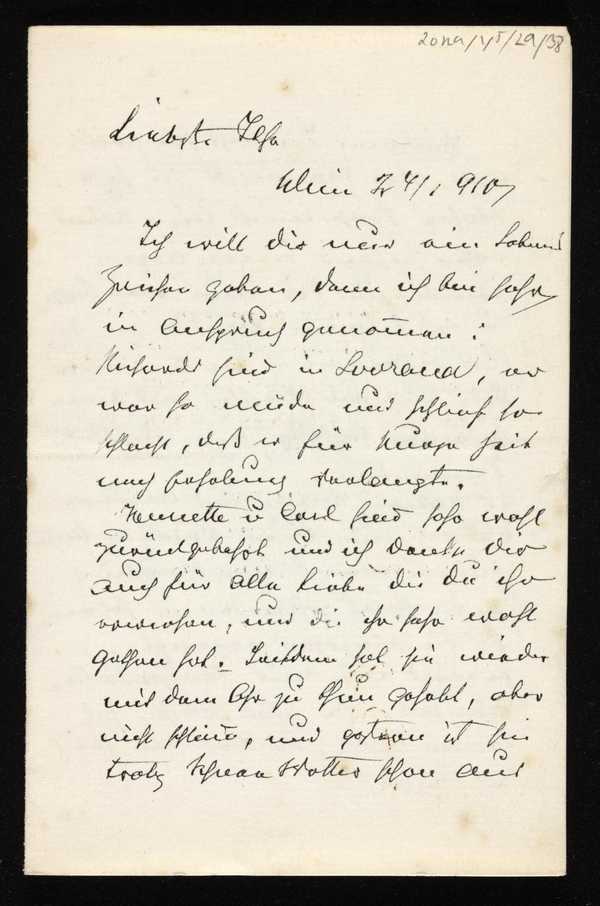 20na/1/5/29/38
Liebste Ilse
Wien 24/1 910
Ich will dir nur ein Lebens
zeichen geben, denn ich bin sehr
in Anspruch genommen:
Richards sind in Lovrana, er
war so müde und schlief so
schlecht, daß er für kurze Zeit
nach Erholung verlangte.
Henriette u Carl sind sehr wohl
zurückgekehrt und ich danke dir
auch für alle Liebe die du ihr
erwiesen, und die ihr sehr wohl
gethan hat. Seitdem hat sie wieder
mit dem Ohr zu thun gehabt, aber
nicht schlimm, und gestern ist sie
trotz Schnee Wetter schon aus